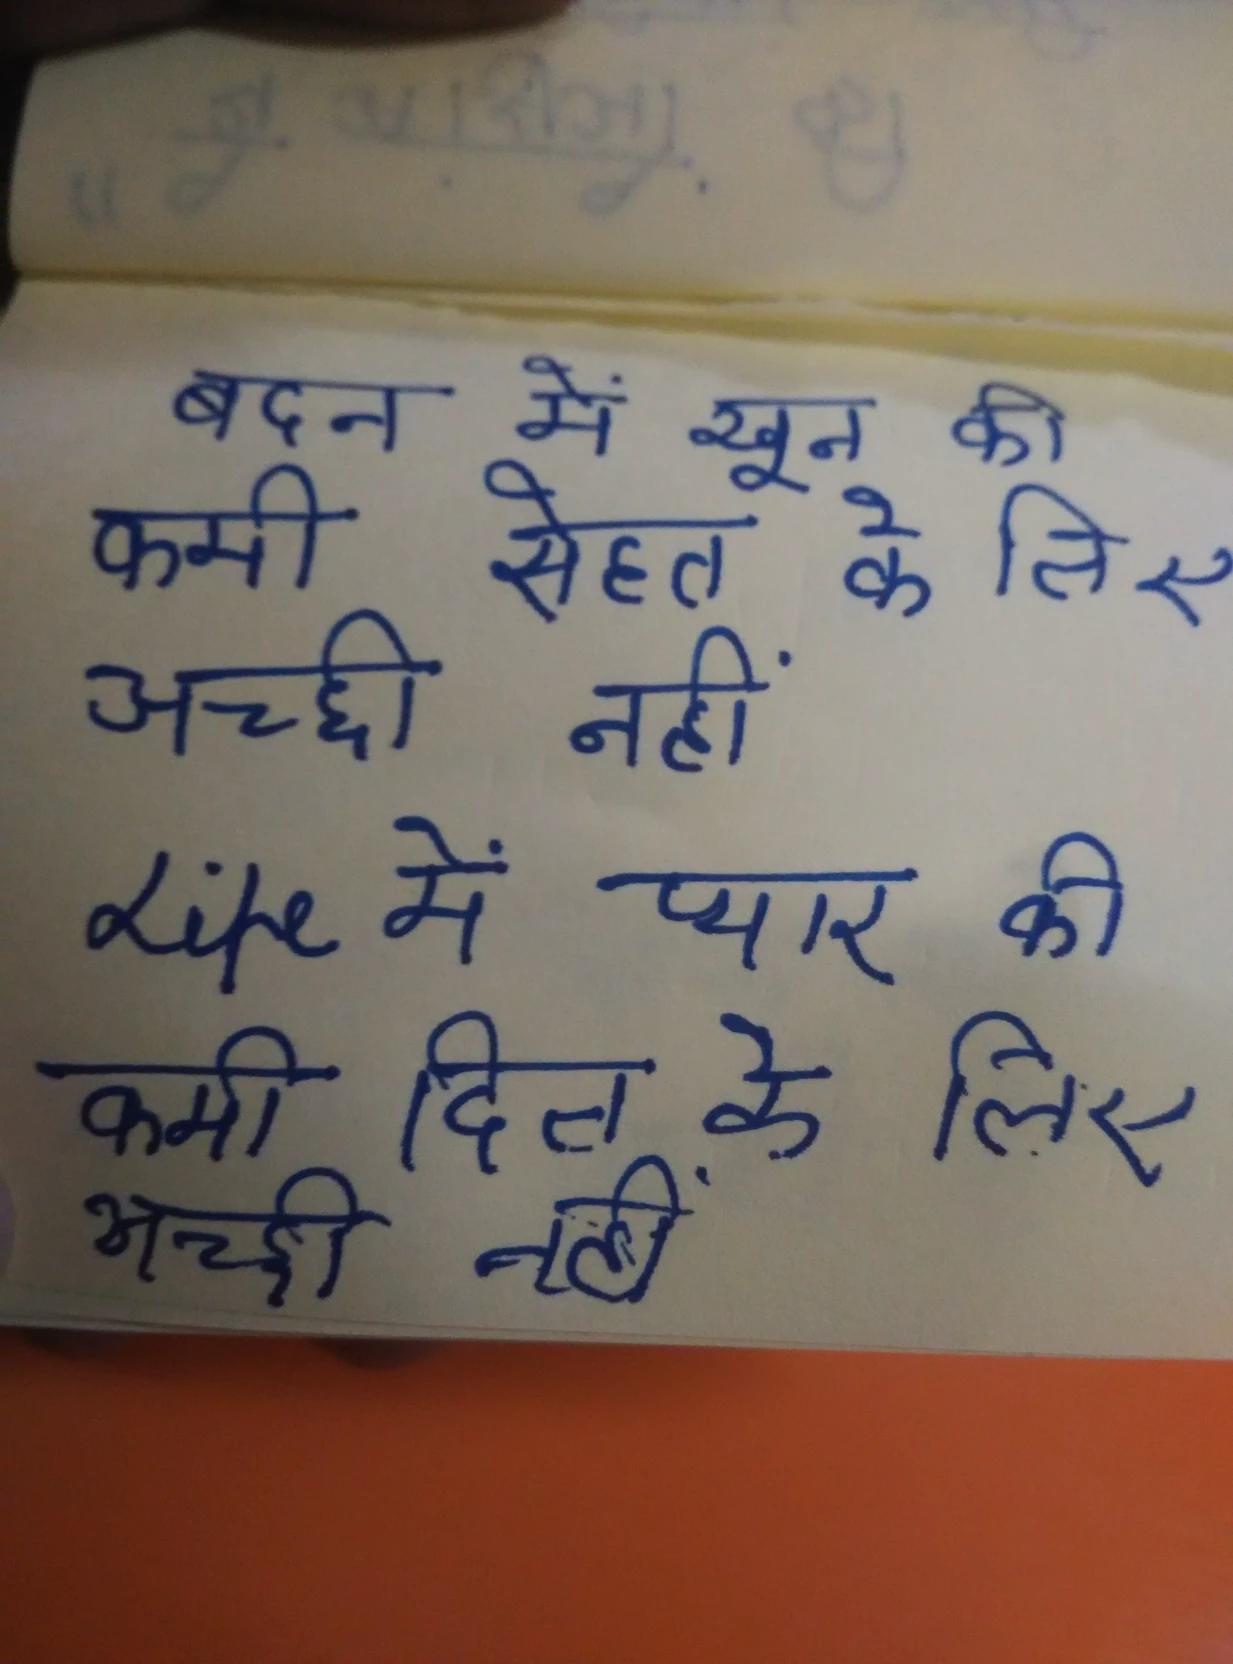 बदन में खून की
कमी सेहत के लिए
अच्छी नहीं
Life में प्यार की
कमी दिल के लिए
अच्छी नहीं